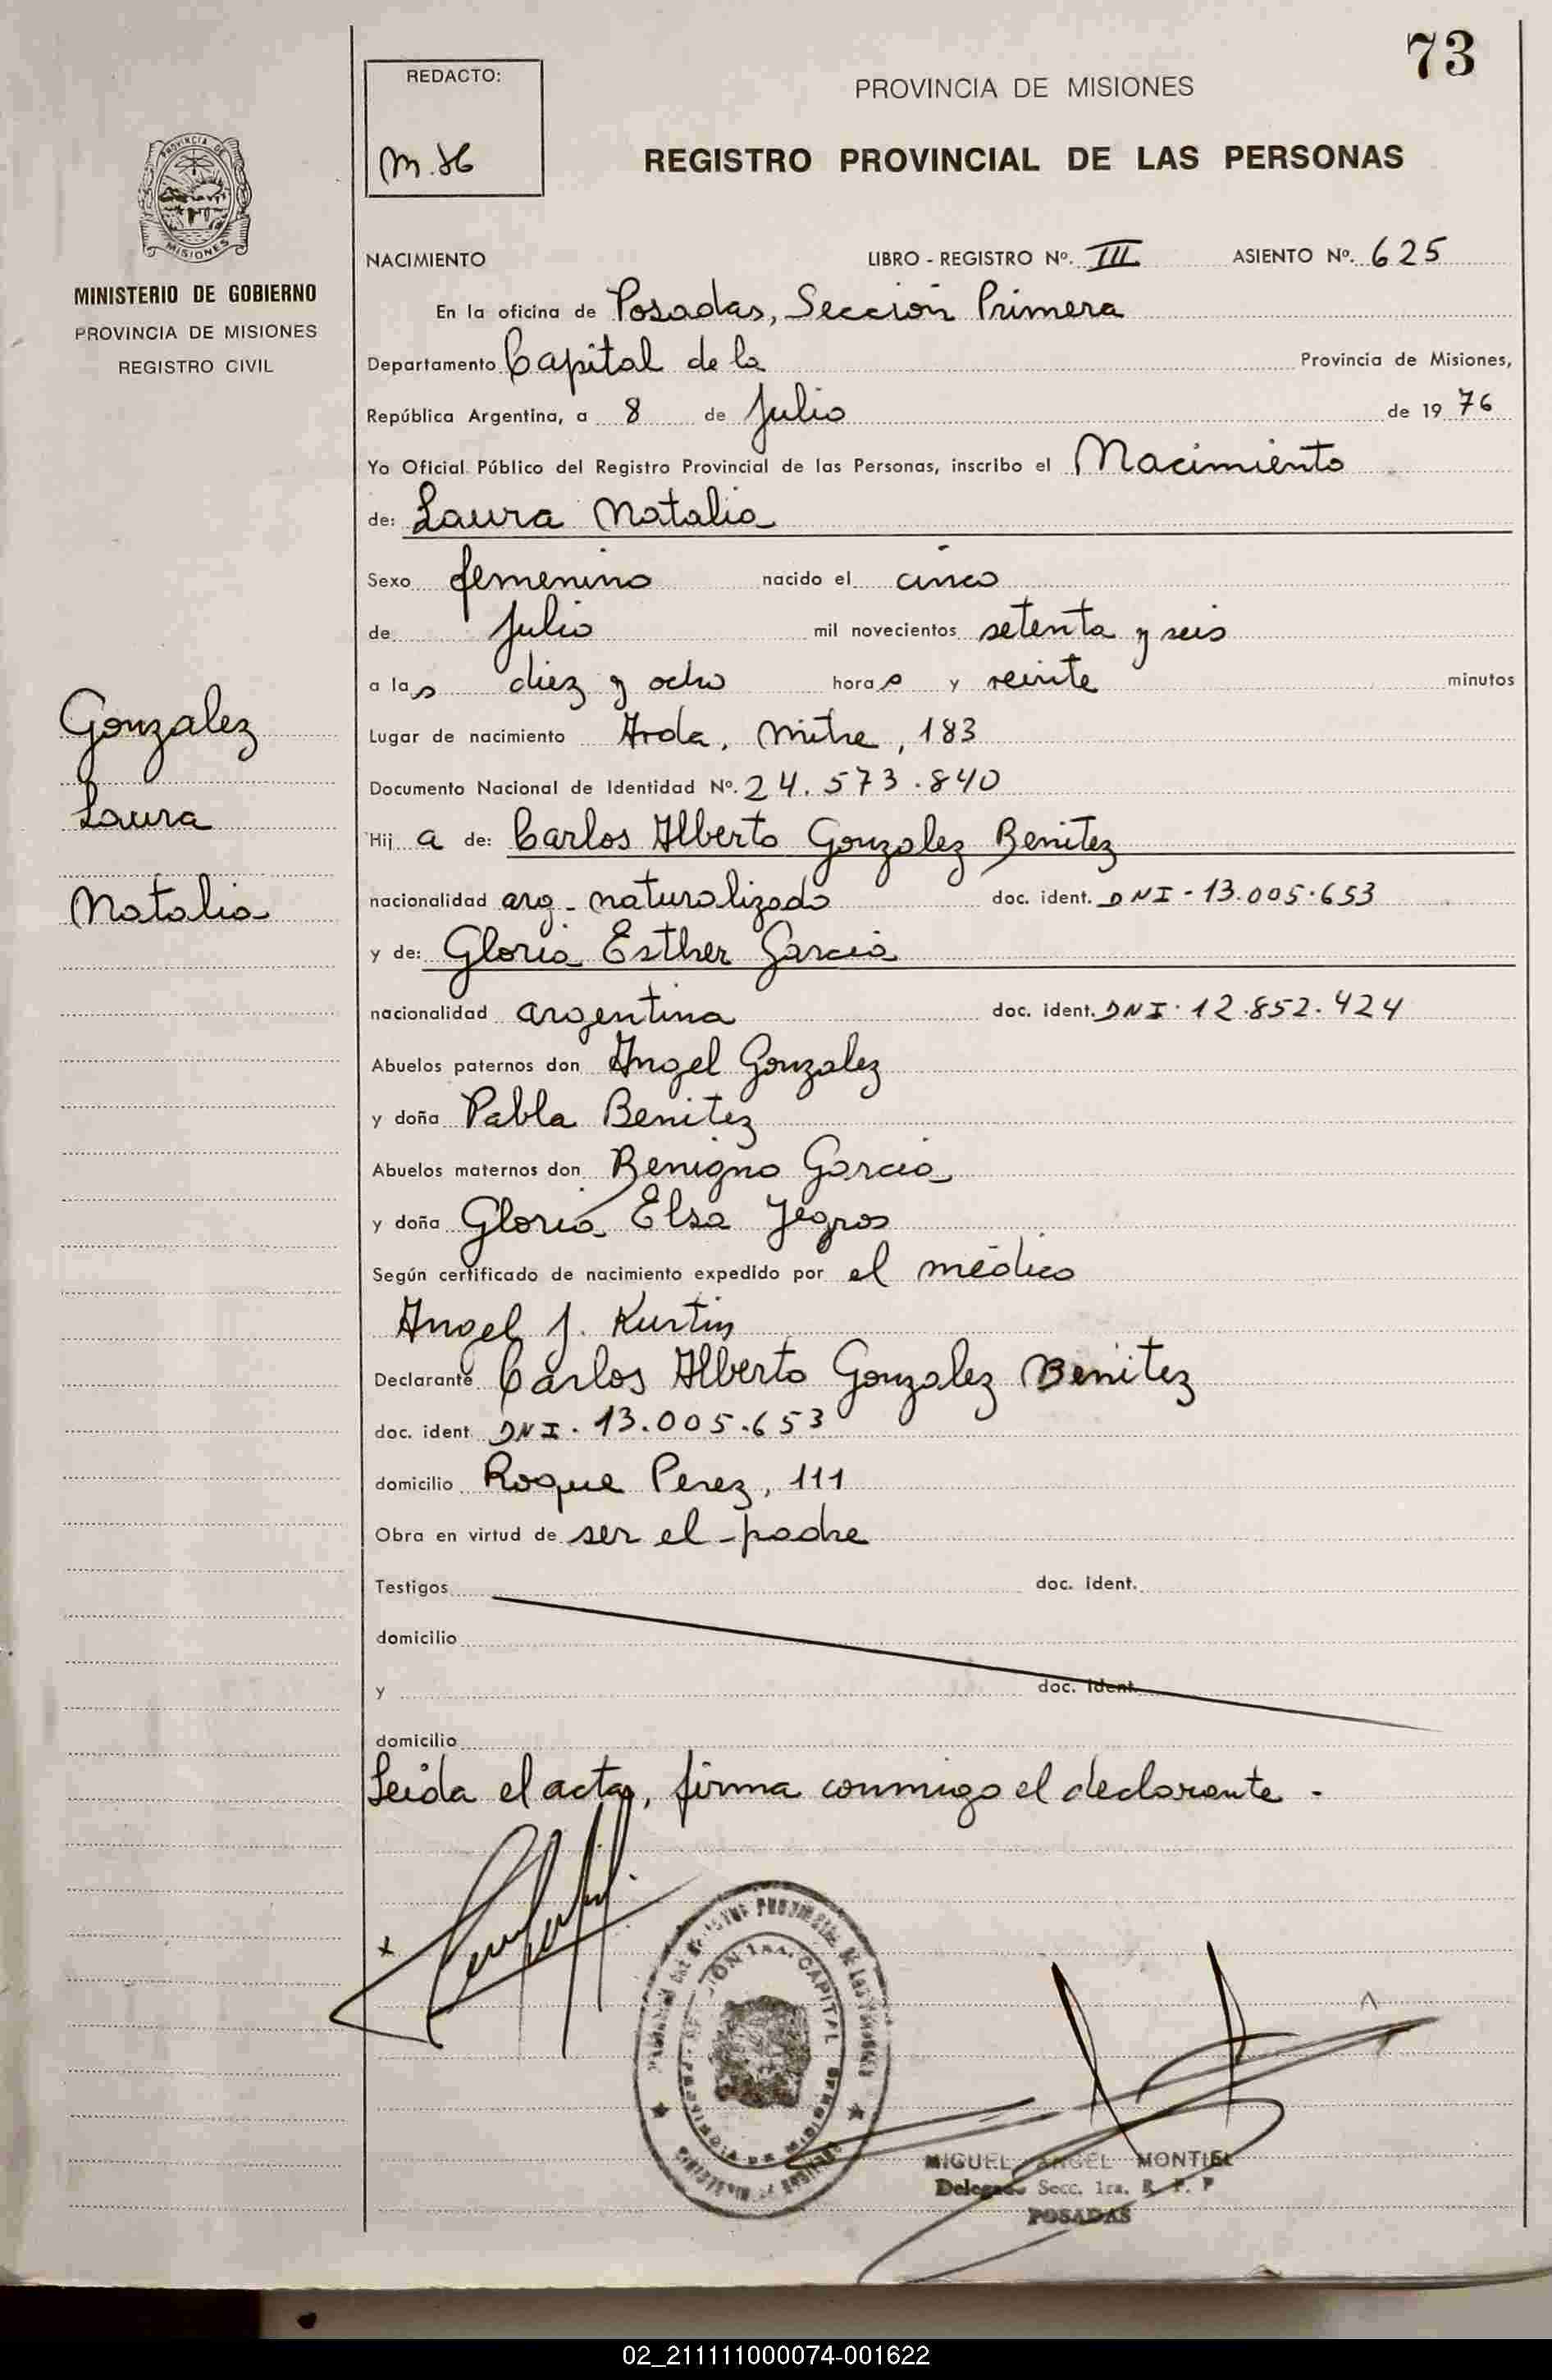 73
REDACTO:
PROVINCIA DE MISIONES
REGISTRO PROVINCIAL DE LAS PERSONAS
PROVINCIA DE
MISIONES
MINISTERIO DE GOBIERNO
PROVINCIA DE MISIONES
REGISTRO CIVIL
NACIMIENTO LIBRO - REGISTRO Nº. III ASIENTO Nº. 625
En la oficina de Posadas, Sección Primera
Departamento Capital de la Provincia de Misiones,
República Argentina, a 8 de Julio de 19 76
Yo Oficial Público del Registro Provincial de las Personas, inscribo el Nacimiento
de: Laura Natalia
Sexo femenino nacido el cinco
de Julio mil novecientos setenta y seis
a las diez y ocho horas y veinte minutos
Lugar de nacimiento Avda. Mitre, 183
Documento Nacional de Identidad Nº. 24.573.840
Hij a de: Carlos Alberto Gonzalez Benitez
nacionalidad arg. naturalizado doc. ident. DNI - 13.005.653
y de: Gloria Esther Garcia
nacionalidad argentina doc. ident. DNI. 12.852.424
Abuelos paternos don Angel Gonzalez
y doña Pabla Benitez
Abuelos maternos don Benigno Garcia
y doña Gloria Elsa Yegros
Según certificado de nacimiento expedido por el médico
Angel J. Kurtin
Declarante Carlos Alberto Gonzalez Benitez
doc. ident. DNI. 13.005.653
domicilio Roque Perez, 111
Obra en virtud de ser el padre
Testigos doc. ident.
domicilio
y doc. ident.
domicilio
Leída el acta, firma conmigo el declarante.
Gonzalez
Laura
Natalia
x
CAPITAL
MIGUEL ANGEL MONTIEL
Delegado Secc. 1ra. R. P. P
POSADAS
02_211111000074-001622